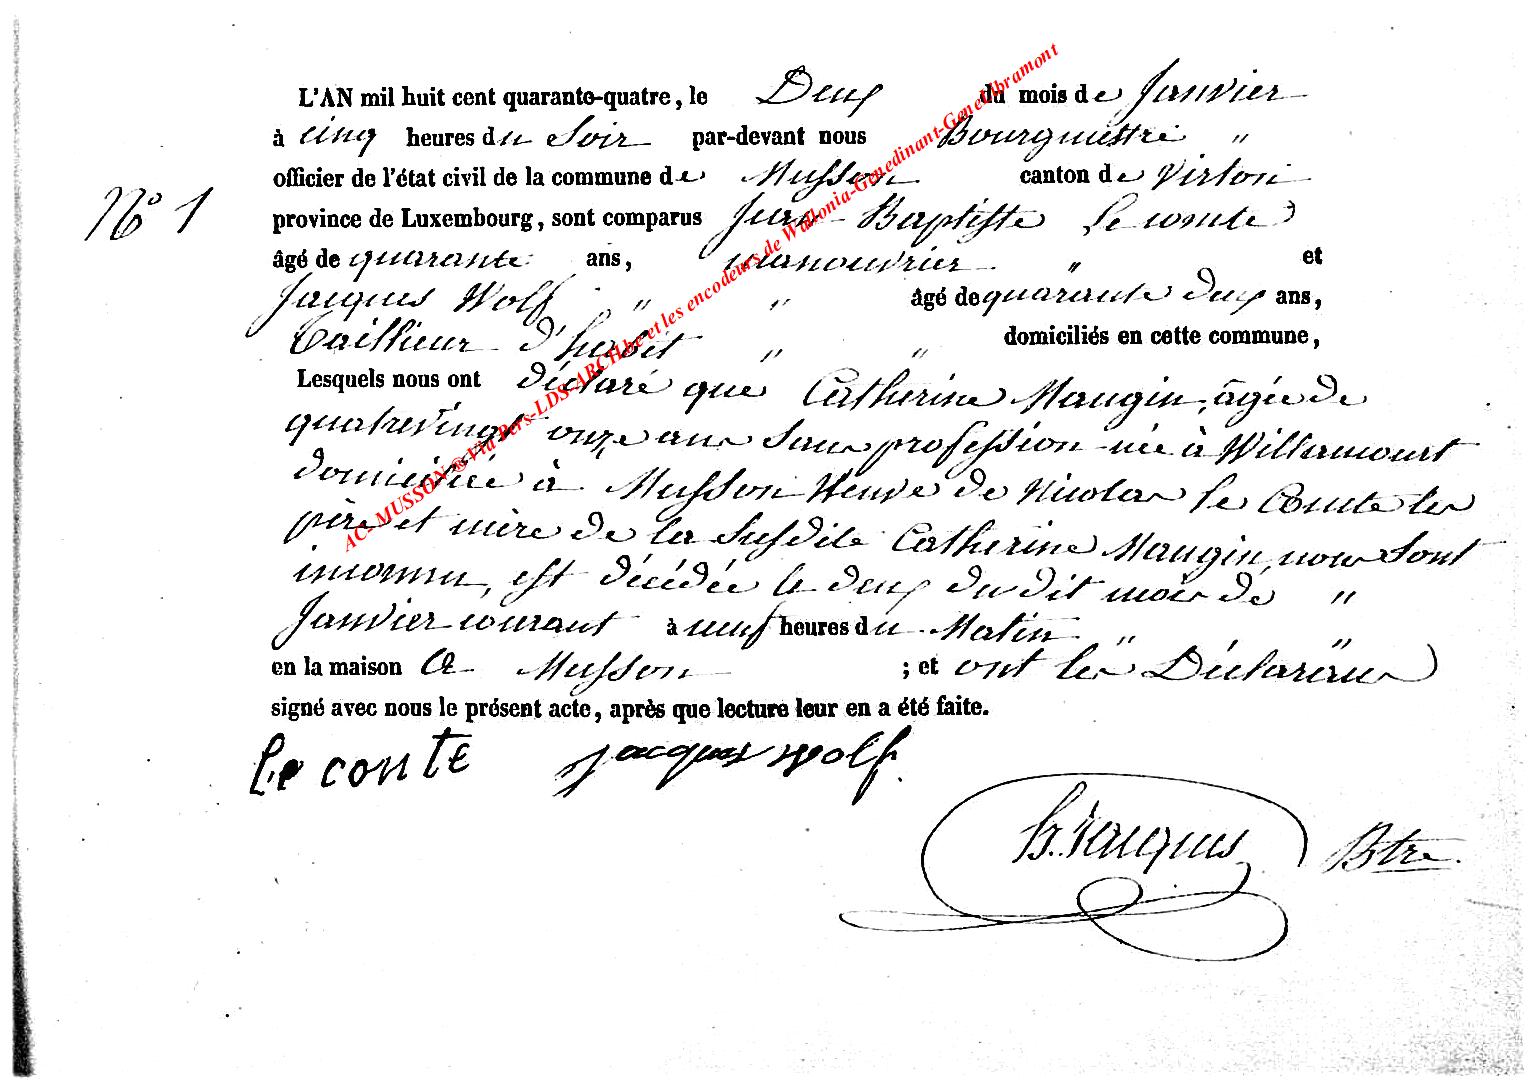 L'AN mil huit cent quarante-quatre, le Deux du mois de Janvier
à cinq heures du Soir par-devant nous Bourgmestre "
officier de l'état civil de la commune de Musson canton de Virton
N° 1
province de Luxembourg, sont comparus Jean Baptiste Le comte
âgé de quarante ans, manouvrier " et
Jacques Wolf " " âgé de quarante deux ans,
Taillieur d'habit " " domiciliés en cette commune,
Lesquels nous ont déclaré que Catherine Maugin, âgée de
quatrevingt onze ans Sans profession née à Willancourt
domiciliée à Musson Veuve de Nicolas Le Comte les
père et mère de la Susdite Catherine Maugin, nous Sont
inconnu, est décédée le deux du dit mois de "
Janvier courant à neuf heures du Matin " "
en la maison à Musson ; et ont les Déclarans
signé avec nous le présent acte, après que lecture leur en a été faite.
Le conte jacques wolf
Jacques Btre
AC- MUSSON ® Via Pers-LDS-ARCH.be et les encodeurs de Wallonia-Genedinant-Genealibramont